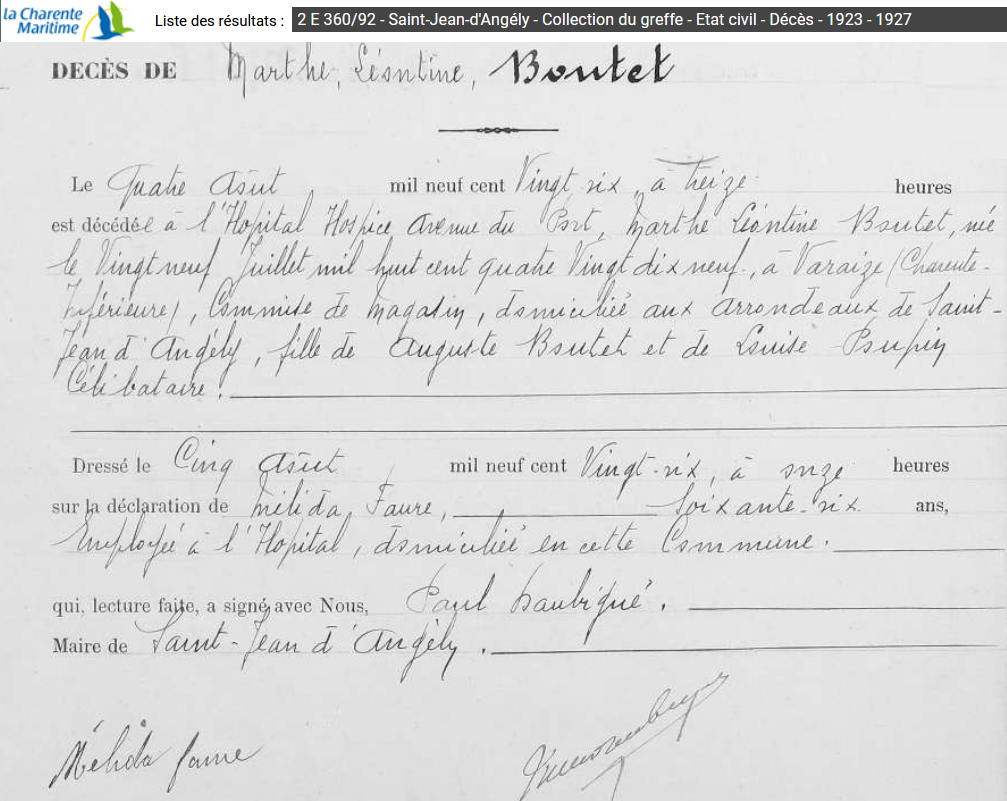 la Charente
Maritime
Liste des résultats : 2 E 360/92 - Saint-Jean-d'Angély - Collection du greffe - Etat civil - Décès - 1923 - 1927
DECÈS DE Marthe, Léontine, Boutet
Le Quatre Août mil neuf cent Vingt six, à Treize heures
est décédée à l'Hopital Hospice Avenue du Port, Marthe Léontine Boutet, née
le Vingt neuf Juillet mil huit cent quatre Vingt dix neuf, à Varaize (Charente-
Inférieure), Commise de magasin, domiciliée aux Arrondeaux de Saint-
Jean d'Angély, fille de Auguste Boutet et de Louise Poupin
Célibataire.
Dressé le Cinq Août mil neuf cent Vingt-six, à onze heures
sur la déclaration de Mélida Faure, Soixante-six ans,
Employée à l'Hopital, domiciliée en cette Commune.
qui, lecture faite, a signé avec Nous, Paul
Maire de Saint-Jean d'Angély.
Mélida faure